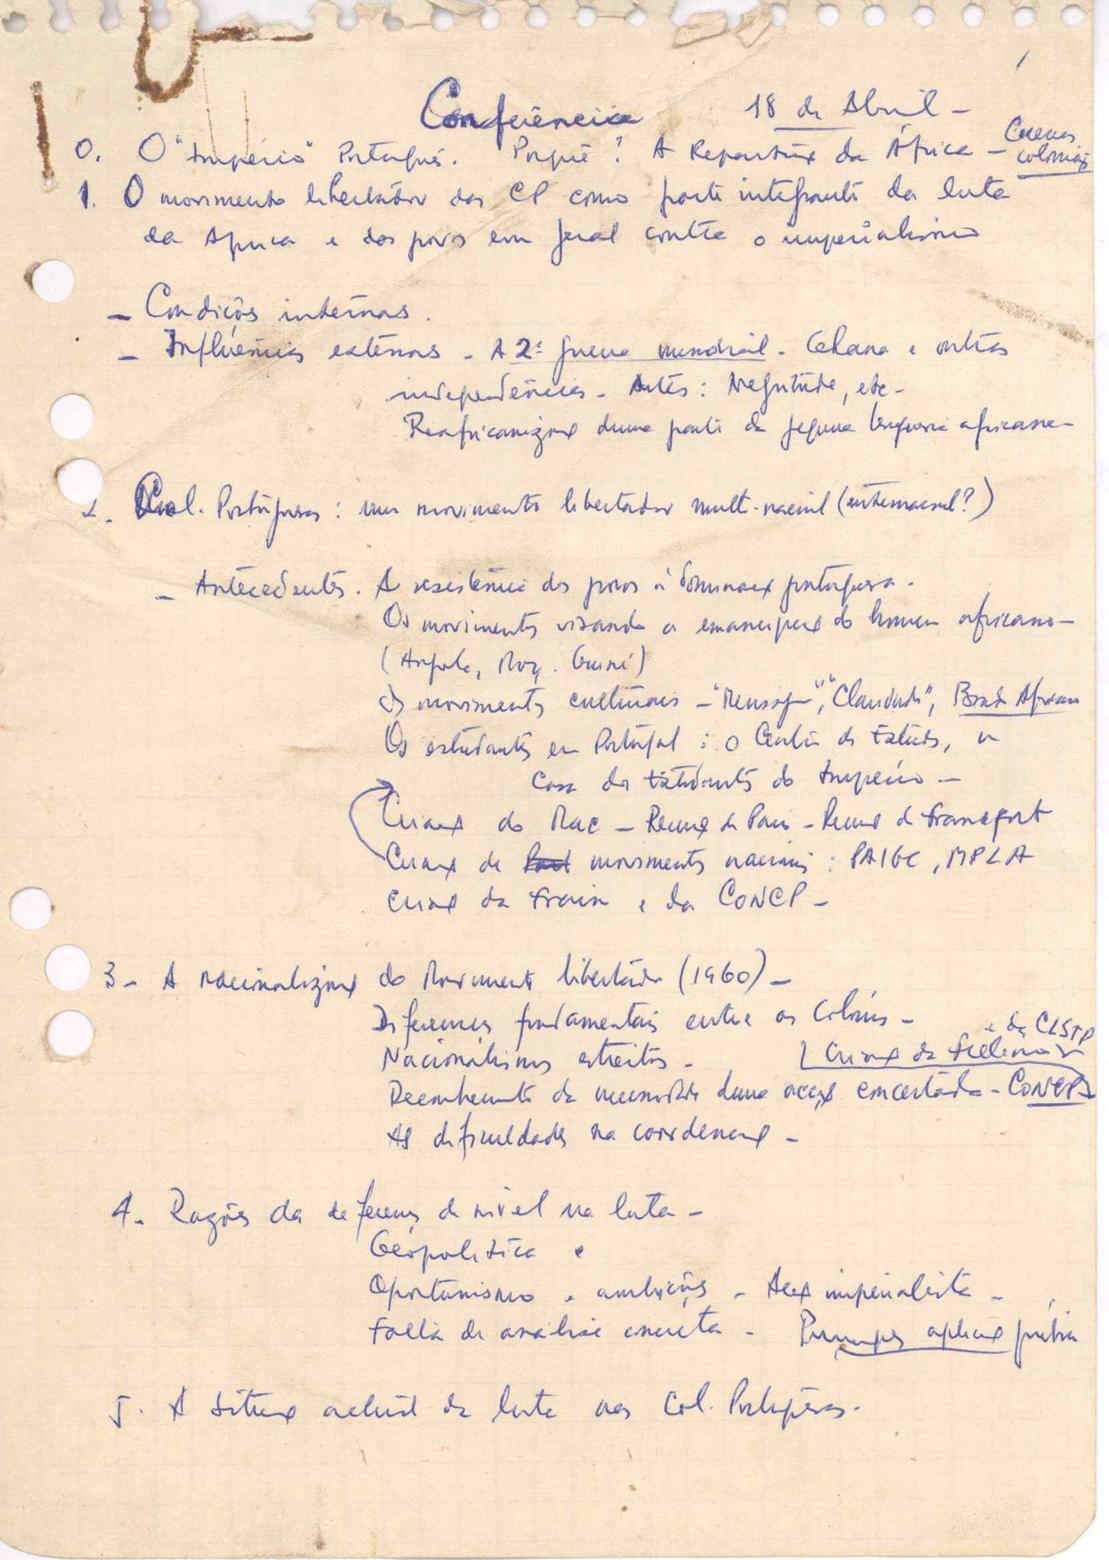 Conferência 18 de Abril -
0. O "Império" Português. Porquê? A Repartição da África - Guerras coloniais
1. O movimento libertador das CP como parte integrante da luta
da África e dos povos em geral contra o imperialismo
- Condições internas.
- Influências externas - A 2ª guerra mundial - Ghana e outras
independências - Antes: Negritude, etc -
Reafricanização duma parte da pequena burguesia africana -
2. Col. Portuguesas: um movimento libertador multi-nacional (internacional?)
- Antecedentes. A resistência dos povos à dominação portuguesa.
Os movimentos visando a emancipação do homem africano -
(Angola, Moç. Guiné)
Os movimentos culturais - "Mensagem", "Claridade",
Os estudantes em Portugal: o Centro de Estudos, a
Casa dos Estudantes do Império -
Criação do Mac - Reunião de Paris - Reunião de Francfort
Criação de movimentos nacionais: PAIGC, MPLA
Criação da Frain e da CONCP -
3 - A nacionalização do Movimento libertador (1960) -
Diferenças fundamentais entre as Colónias -
e do CLSTP
Nacionalismos estreitos - Criação da Frelimo
Reconhecimento da necessidade duma acção concertada - CONCP
As dificuldades na coordenação -
4. Razões da diferença de nível na luta -
Geopolítica e
Oportunismo e ambições - Acção imperialista -
Falta de análise concreta - Princípios aplicação prática
5. A situação actual da luta nas Col. Portuguesas.